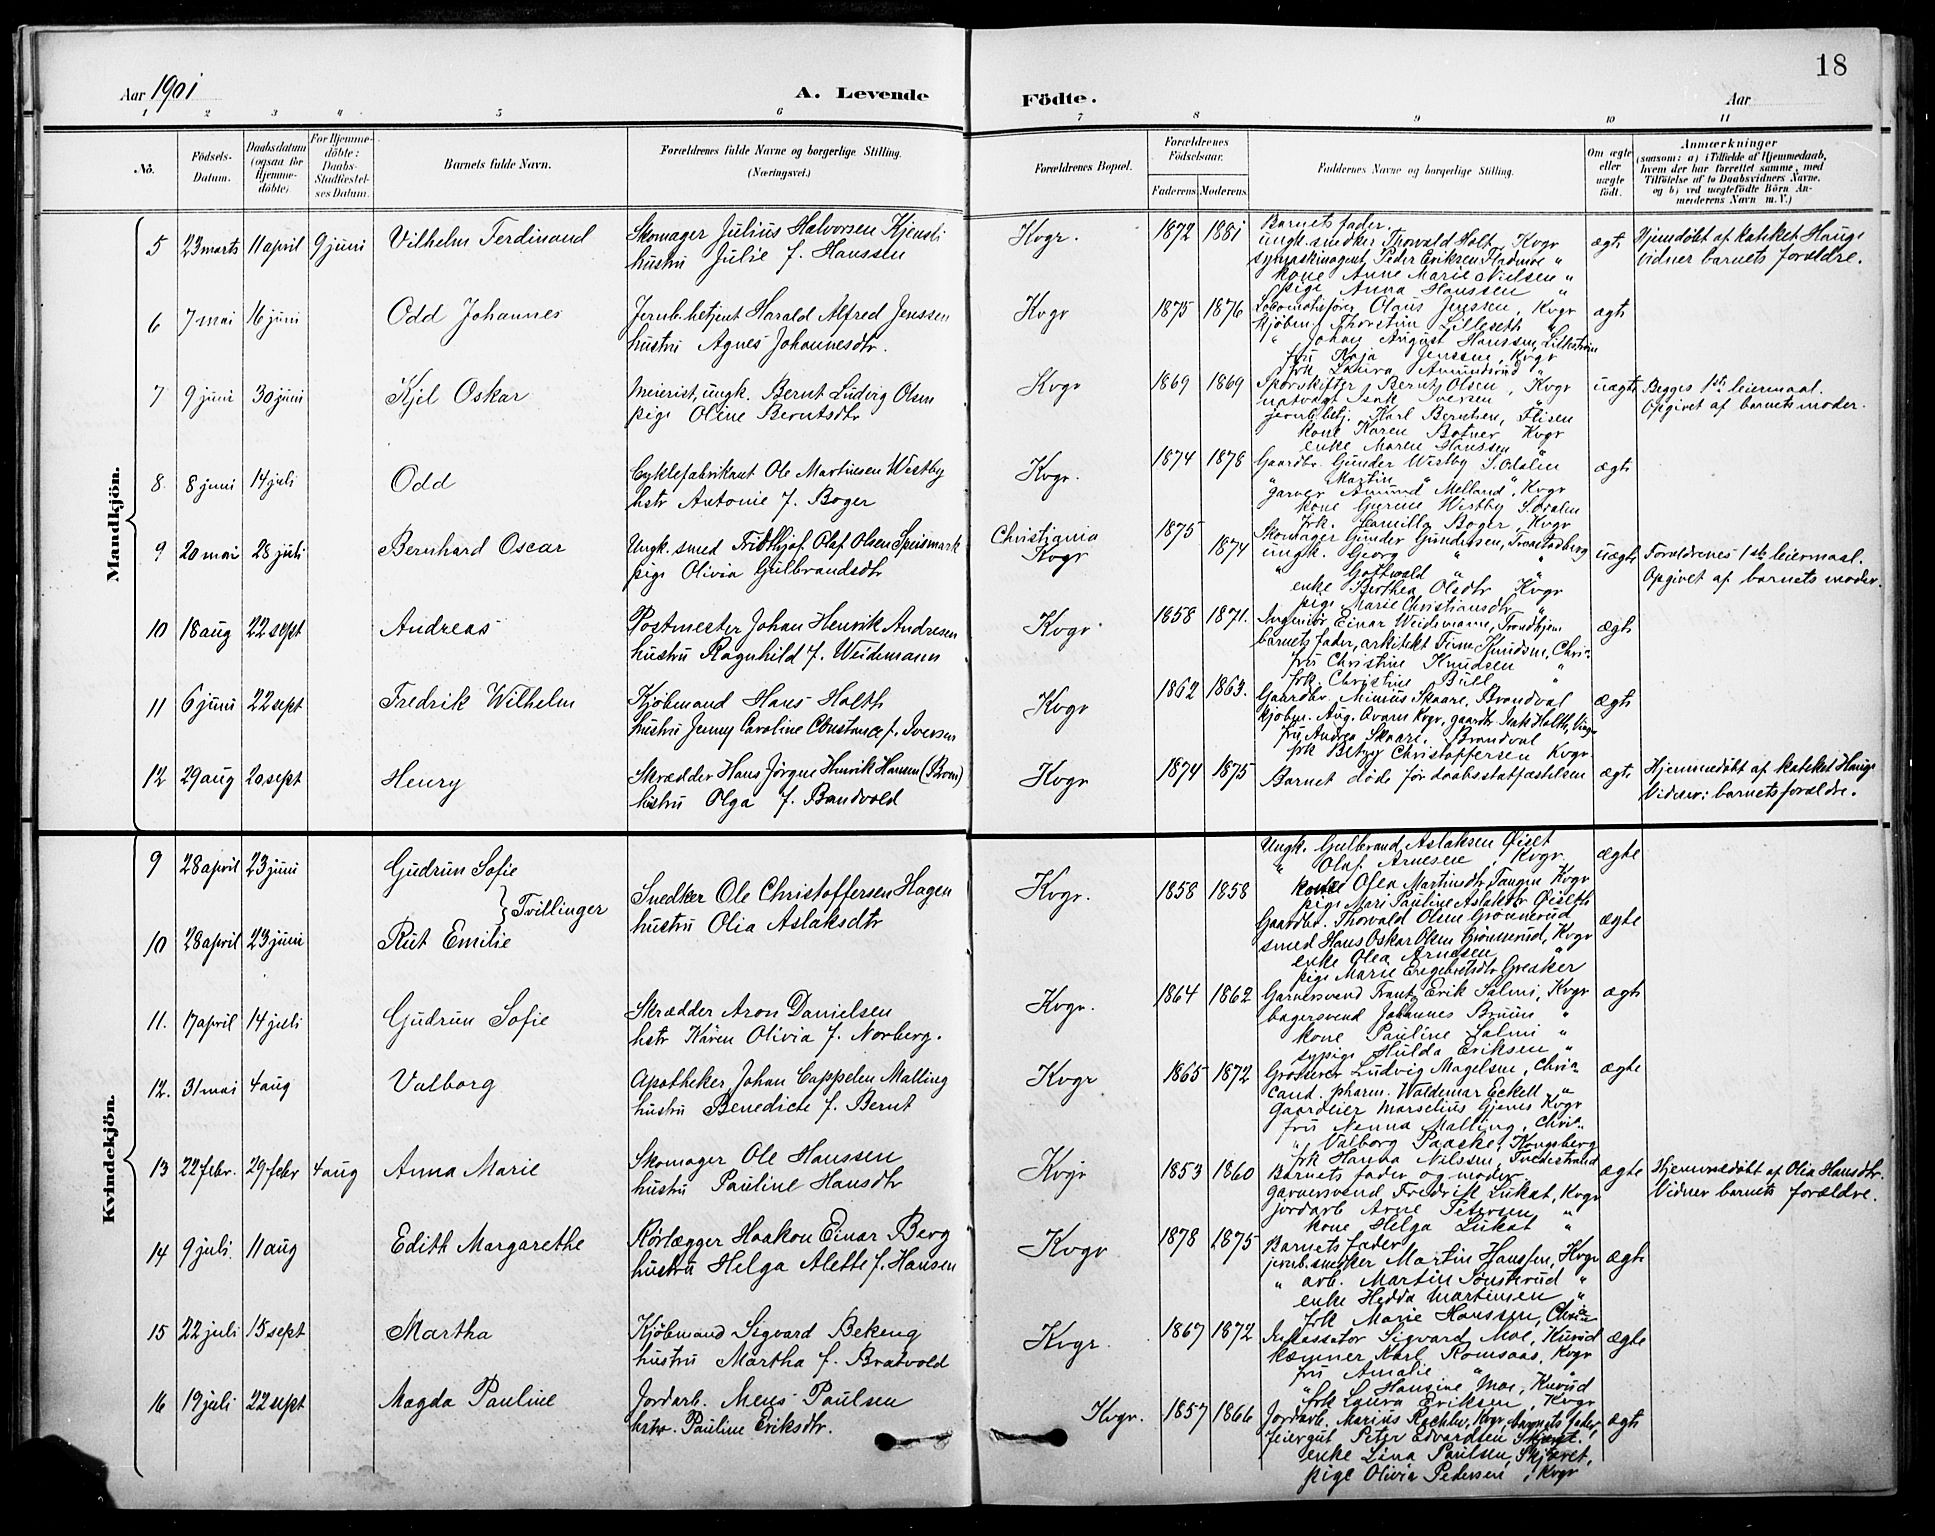 18
Aar 1901
A. Levende Födte.
Aar
1 2 3 4 5 6 7 8 9 10 11
No.
Födsels-Datum.
Daabsdatum (ogsaa for Hjemme-döbte)
For Hjemme-döbte: Daabs-Stadfæstel-ses Datum.
Barnets fulde Navn.
Forældrenes fulde Navne og borgerlige Stilling.
(Næringsvei.)
Forældrenes Bopæl.
Forældrenes Födselsaar.
Faderens. Moderens.
Faddernes Navne og borgerlige Stilling.
Om ægte eller uægte födt.
Anmærkninger
(saasom: a) i Tilfælde af Hjemmedaab,
hvem der har forrettet samme, med
Tilföielse af to Daabsvidners Navne,
og b) ved uægtefödte Börn An-
mederens Navn m. V.)
Mandkjön.
5 23 marts 11 april 9 juni Vilhelm Ferdinand
Skomager Julius Halvorsen Kjensli
hustru Julie f. Hanssen
Kvgr. 1872 1881
Barnets fader.
ungk. snedker Thorvald Holt, Kvgr
symaskinagent Peder Eriksen "
kone Anne Marie Nielsen "
pige Anna Hanssen "
ægte
Hjemdøbt af kateket Hauge
Vidner barnets forældre.
6 7 mai 16 juni Odd Johannes
Jernb.betjent Harald Alfred Jenssen
hustru Agnes Johannesdtr.
Kvgr 1875 1876
Locomotivfører Olaus Jensen, Kvgr
kjøbm. Thorstein Lilleseth "
" Johan August Hanssen, Lillestrøm
fru Kaja Jenssen, Kvgr
frk Laura Amundsrud "
ægte
7 9 juni 30 juni Kjel Oskar
Meierist, ungk. Bernt Ludvig Olsen
pige Oline Berntsdtr
Kvgr 1869 1869
Sporskifter Bernt Olsen, Kvgr
natvagt Isak Iversen "
jernb.betj. Karl Berntsen, Flisen
kone Karen Botner Kvgr
enke Maren Hanssen "
uægte
Begges 1ste leiermaal.
Opgivet af barnets moder.
8. 8 juni 14 juli Odd
Cyklefabrikant Ole Martinsen Westby
hstr Antonie f. Boger
Kvgr. 1874 1878
Gaardbr. Gunder Westby S.Odalen
" Martin "
garver Amund Melland, Kvgr
kone Gurine Westby S.Odalen
frk. Camilla Boger, Kvgr
ægte
9 20 mai 28 juli Bernhard Oscar
Ungk. smed Fridthjof Olaf Olsen Speismark
pige Olivia Gulbrandsdtr
Christiania
Kvgr
1875
1874
Skomager Gunder Gundersen,
ungk. Georg " "
" Gottwald " "
enke Berthea Olsdtr Kvgr
pige Marie Christiansdtr "
uægte
Forældrenes 1ste leiermaal.
Opgivet af barnets moder.
10 18 aug 22 sept Andreas
Postmester Johan Henrik Andresen
hustru Ragnhild f. Weidemann
Kvgr 1858 1871.
Ingeniør Einar Weidemann, Trondhjem
barnets fader, arkitekt Finn Knudsen, Chria
fru Christine Knudsen "
frk. Christine Bull "
ægte
11 6 juni 22 sept Fredrik Wilhelm
Kjøbmand Hans Holth
hustru Jenny Caroline Constance f. Iversen
Kvgr 1862 1863.
Gaardbr. Minius Skaare, Brandval
kjøbm. Aug. Qvam Kvgr, gaardbr. Isak Holth, Vinger
fru Andrea Skaare, Brandval
frk Betzy Christoffersen Kvgr
ægte
12 29 aug 20 sept Henry
Skrædder Hans Jørgen Henrik Hansen
hustru Olga f. Bandvold
Kvgr 1874 1875
Barnet døde før daabsstadfæstelsen
ægte
Hjemmedøbt af kateket Hauge
Vidner: barnets forældre.
Kvindekjön.
9 28 april 23 juni Gudrun Sofie
} Tvillinger
10 28 april 23 juni Rut Emilie
Snedker Ole Christoffersen Hagen
hustru Olia Aslaksdtr
Kvgr. 1858 1858
Ungk. Gulbrand Aslaksen Øiset
" Olaf Arnesen, Kvgr.
kone Olea Martinsdtr Tangen Kvgr
pige Mari Pauline Aslaksdtr Øiseth
ægte
Gaardbr. Thorvald Olsen Grønnerud
smed Hans Oskar Olsen Grønnerud, Kvgr
enke Olea Arnesen "
pige Marie Engebretsdtr Greaker
ægte
11. 17 april 14 juli Gudrun Sofie
Skrædder Aron Danielsen
hstr Karen Olivia f. Norberg.
Kvgr. 1864 1862
Garversvend Frantz Erik Salmi, Kvgr
bagersvend Johannes Bruun "
kone Pauline Salmi "
sypige Hulda Eriksen "
ægte
12. 31 mai 4 aug Valborg
Apotheker Johan Cappelen Malling
hustru Benedicte f. Bernt
Kvgr 1865 1872
Grosserer Ludvig Magelsen, Chria
cand. pharm. Waldemar Eckell "
Gaardeier Marselius Gjems Kvgr
fru Nenna Malling, Chria
" Valborg Paaske, Kongsberg
frk Hanna Nilssen, Fredrikstad
ægte
13 22 febr. 29 febr 4 aug Anna Marie
Skomager Ole Hanssen
hustru Pauline Hansdtr
Kvgr 1853 1860
Barnets fader og moder
garversvend Fredrik Lukat, Kvgr
jordarb Arne Petersen "
kone Helga Lukat "
ægte
Hjemmedøbt af Olia Hansdtr.
Vidner barnets forældre.
14 9 juli. 11 aug Edith Margarethe
Rørlægger Haakon Einar Berg
hustru Helga Alette f. Hansen
Kvgr 1878 1875
Barnets fader
jernb.snedker Martin Hanssen, Kvgr
" arb. Martin Sønsterud "
enke Hedda Martinsen "
frk Marie Hanssen, Chria
ægte
15 22 juli 15 sept Martha
Kjøbmand Sigvard Bekeng
hustru Martha f. Bratvold
Kvgr. 1867 1872
Inkassator Sigvard Moe, Kurud
kæmner Karl Romsaas, Kvgr
fru Amalie " "
" Hansine Moe, Kurud
frk Laura Eriksen, Kvgr
ægte
16 19 juli 22 sept Magda Pauline
Jordarb. Mens Paulsen
hstr. Pauline Eriksdtr.
Kvgr. 1857 1866
Jordarb. Marius Kvgr, barnets fader,
feiergut Peter Edvardsen
enke Lina Paulsen, Skjæret,
pige Olivia Pedersen, Kvgr
ægte